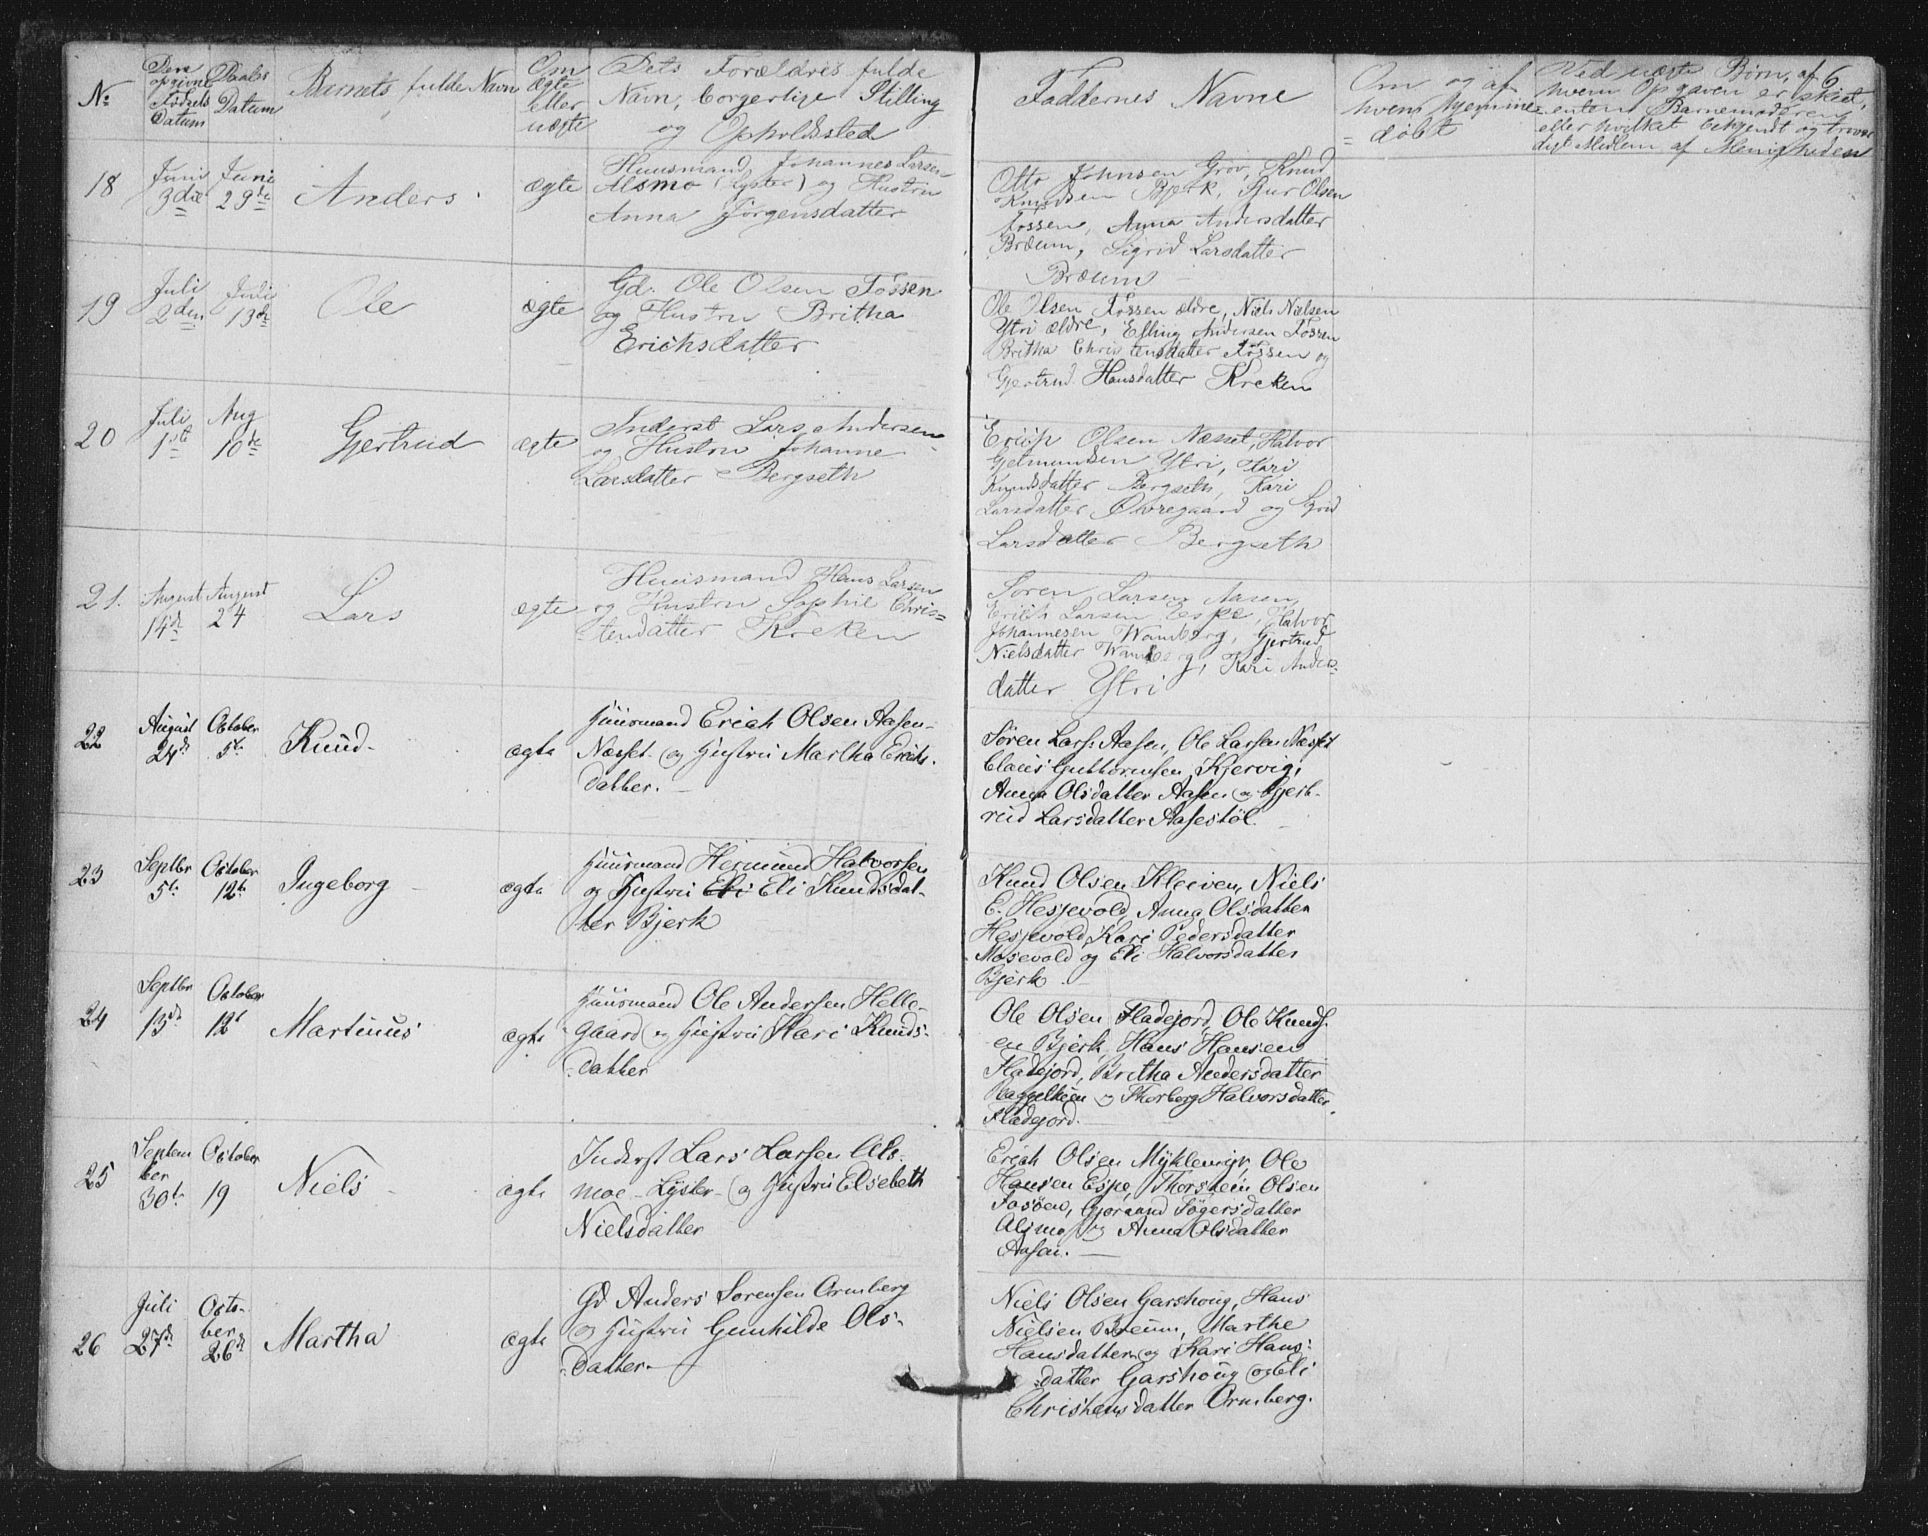 6
No
Den opgivne Fødsels Datum
Daabs Datum
Barnets fulde Navn
Om ægte eller uægte
Dets Forældres fulde
Navn, borgerlige Stilling
og Opholdssted
Faddernes Navne
Om og af
hvem hjemme=
=døbt
Ved uægte Børn, af
hvem Opgaven er skeet,
enten Barnemoderen
eller hvilket bekjendt og trovær
digt Medlem af Menigheden
18
Juni
3die
Juni
29de
Anders
ægte
Huusmand Johannes Larsen
Alsmo (Lyster) og Hustru
Anna Jørgensdatter
Otto Johnsen Grov, Knud
Knudsen Bjerk, Sjur Olsen
Fossen, Anna Andersdatter
Bræum, Sigrid Larsdatter
Bræum
19
Juli
2den
Juli
13de
Ole
ægte
Gd. Ole Olsen Fossen
og Hustru Britha
Erichsdatter
Ole Olsen Fossen ældre, Niels Nielsen
Ytri ældre, Elling Andersen Fossen
Britha Christensdatter Fossen og
Gjertrud Hansdatter Kreken
20
Juli
1ste
Aug
10de
Gjertrud
ægte
Inderst Lars Andersen
og Hustru Johanne
Larsdatter Bergseth
Erich Olsen Næsset, Halvor
Getmundsen Ytri, Kari
Knudsdatter Bergseth, Kari
Larsdatter Øvregaard og
Larsdatter Bergseth
21.
August
14de
August
24
Lars
ægte
Huusmand Hans Larsen
og Hustru Sophie Chris=
tensdatter Kreken
Søren Larsen Aasen
Erich Larsen Espe, Halvor
Johannesen Wamberg, Gjertrud
Nielsdatter Wamberg, Kari Anders-
datter Ytri
22
August
24de
October
5te
Knud
ægte
Huusmand Erich Olsen Aasen
Næsset og Hustru Martha Erichs-
datter.
Søren Lars: Aasen, Ole Larsen Næsset
Claus Guttormsen Kjervig,
Anna Olsdatter Aasen og Gjert-
rud Larsdatter Aasestøl.
23
Septbr
5te
October
12te
Ingeborg
ægte
Huusmand Hermund Halvorsen
og Hustru Eli Eli Knudsdat-
ter Bjerk
Knud Olsen Kleiven, Niels
E. Hesjevold, Anna Olsdatter
Hesjevold, Kari Pedersdatter
Mosevold og Eli Halvorsdatter
Bjerk.
24
Septbr
13de
October
12te
Martinus
ægte
Huusmand Ole Andersen Helle-
gaard og Hustru Kari Knuds-
datter
Ole Olsen Fladejord, Ole Knuds-
en Bjerk, Hans Hansen
Fladejord, Britha Andersdatter
og Thorberg Halvorsdatter
Fladejord.
25
Septem
ber
30te
October
19
Niels
ægte
Inderst Lars Larsen Als-
moe - Lyster - og Hustru Elsebeth
Nielsdatter
Erich Olsen Myklemyr, Ole
Hansen Espe, Thorstein Olsen
Fosøen, Gjørand Jøgersdatter
Alsmo og Anna Olsdatter
Aasen.
26
Juli
27de
Octo-
ber
26de
Martha
ægte
Gd Anders Sørensen Ormberg
og Hustru Gunhilde Ols-
datter.
Niels Olsen Garshoug, Hans
Nielsen Breum, Marthe
Hansdatter og Kari Hans-
datter Garshoug og Eli
Christensdatter Ormberg.